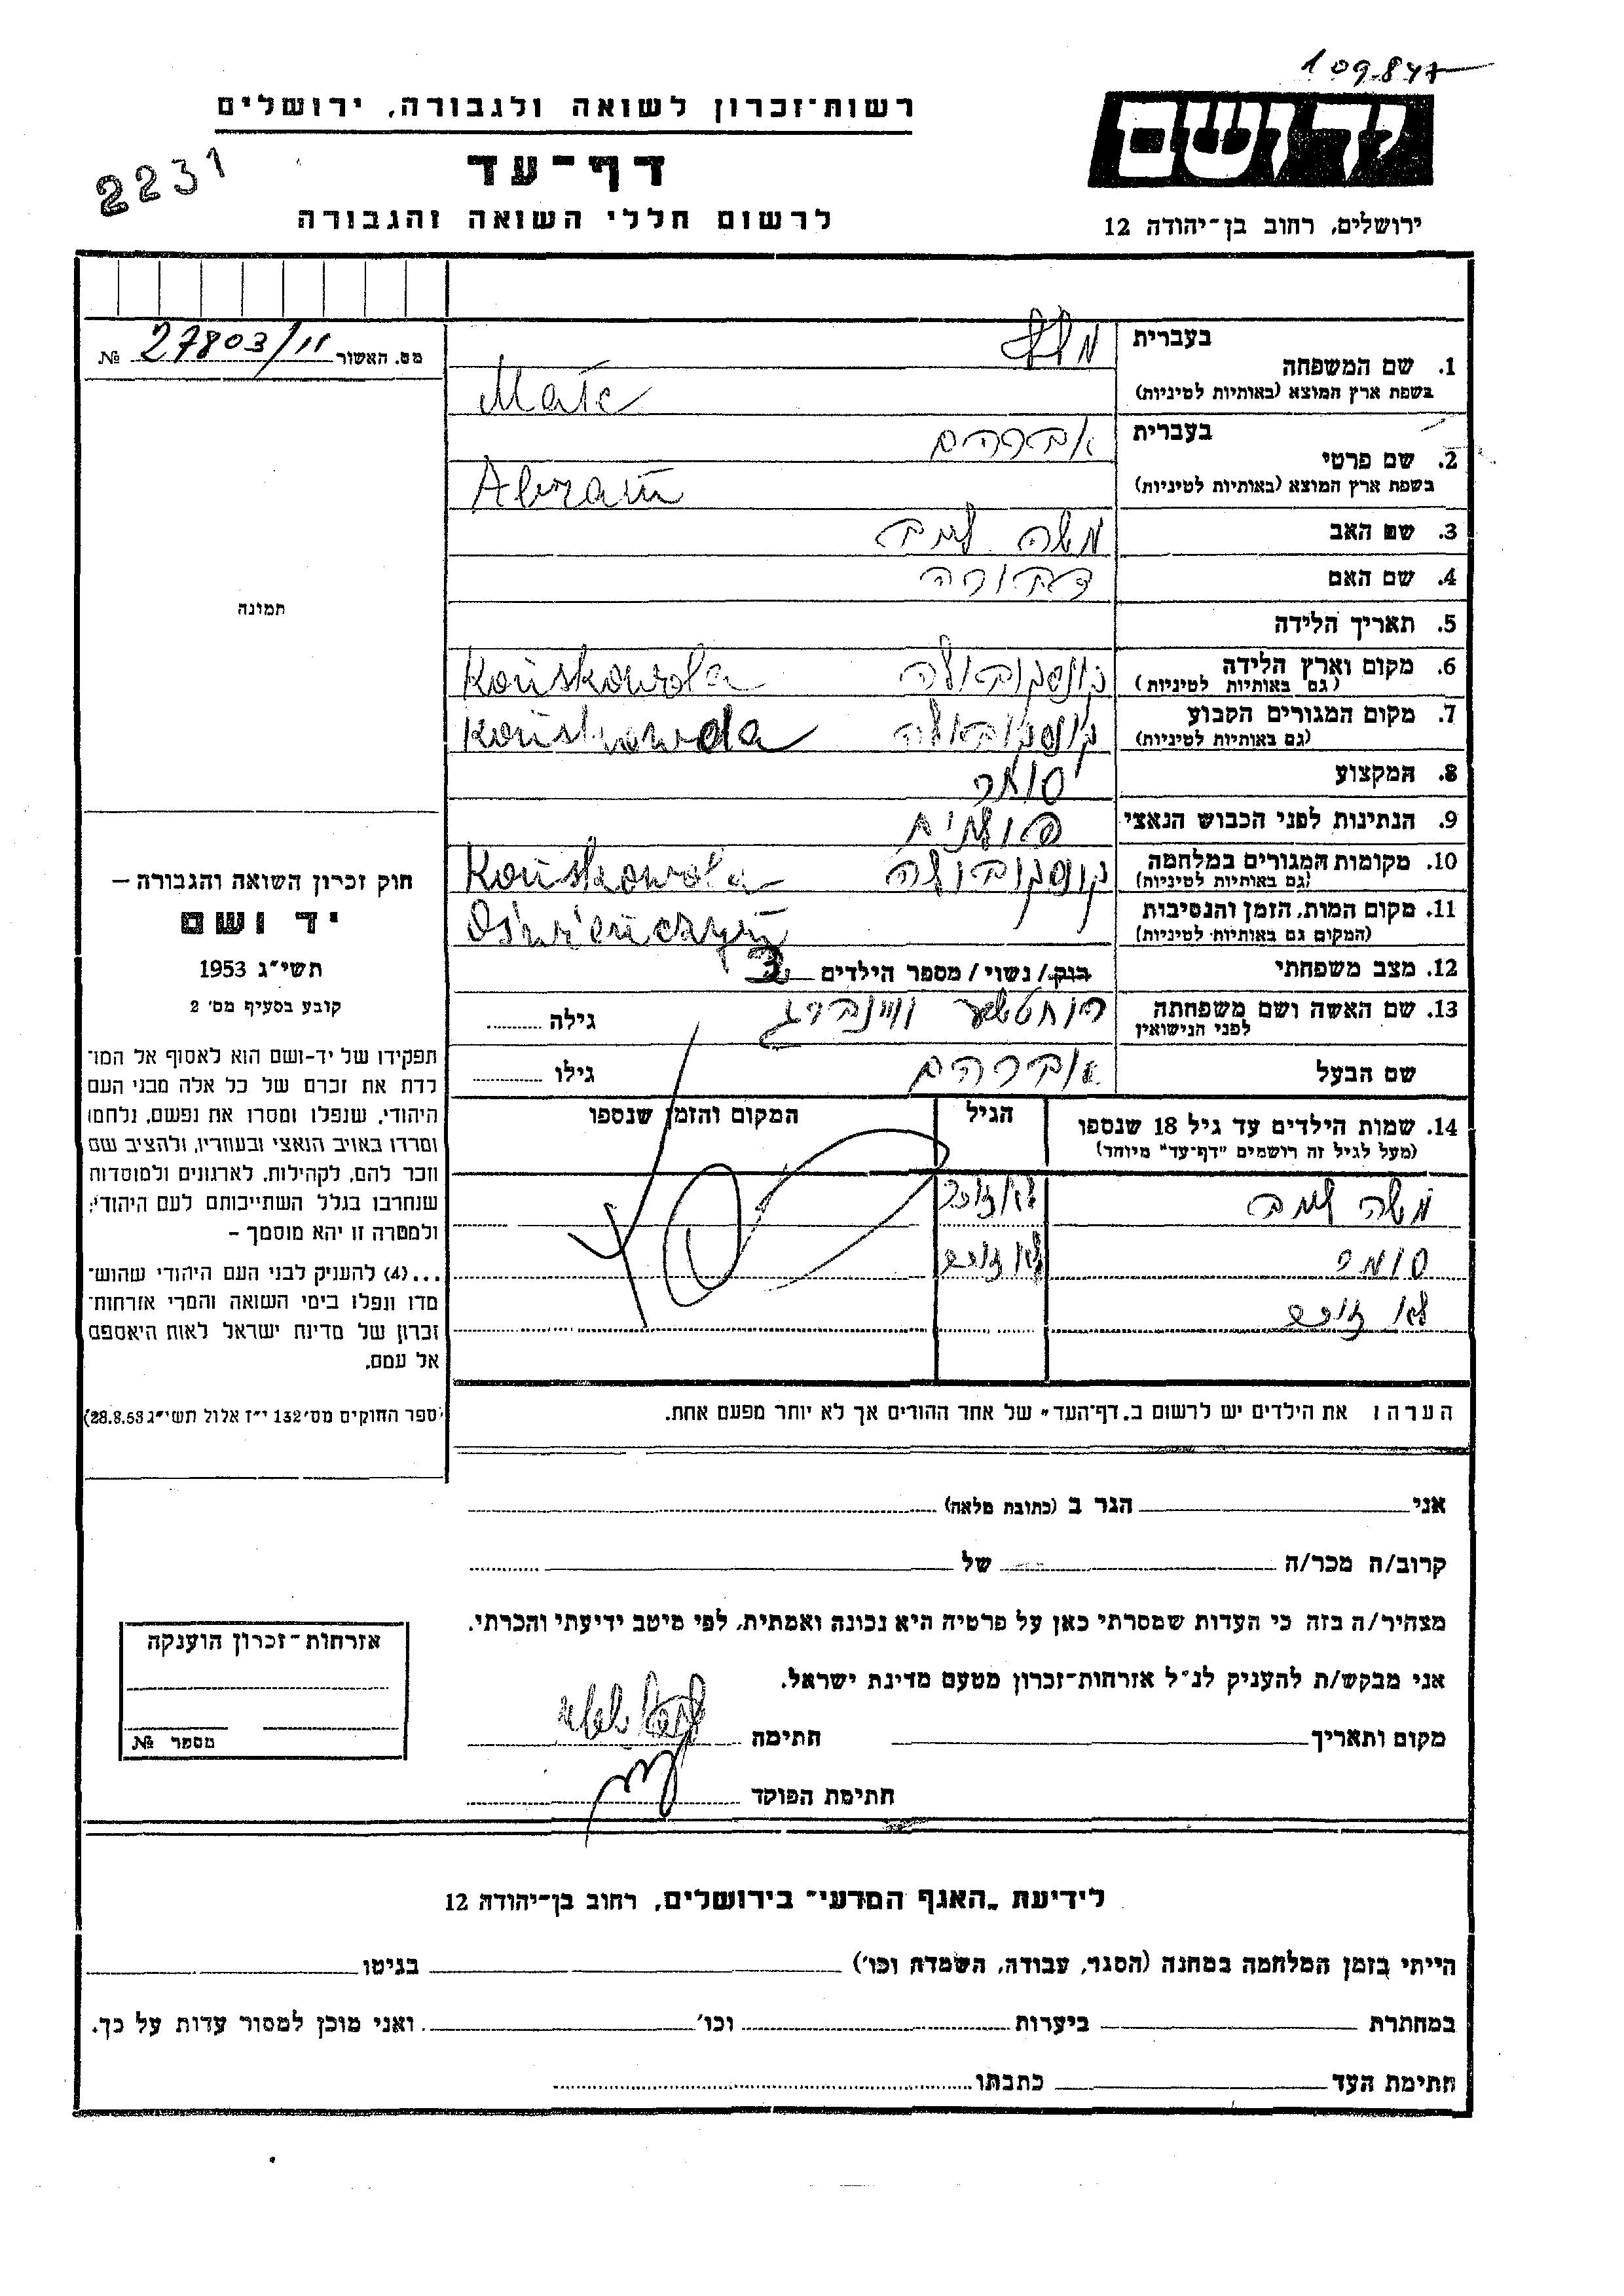 109.847
יד ושם
רשות־זכרון לשואה ולגבורה, ירושלים
2231
דף־עד
לרשום חללי השואה והגבורה
ירושלים, רחוב בן־יהודה 12
מס. האשור 27803/11 №
בעברית
1. שם המשפחה
(בשפת ארץ המוצא (באותיות לטיניות
בעברית אברהם
2. שם פרטי
(בשפת ארץ המוצא (באותיות לטיניות Abram
3. שם האב משה לייב
4. שם האם דבורה
5. תאריך הלידה
6. מקום וארץ הלידה קונסקובולה Końskowola
(גם באותיות לטיניות)
7. מקום המגורים הקבוע קונסקובולה Końskowola
(גם באותיות לטיניות)
8. המקצוע סוחר
9. הנתינות לפני הכבוש הנאצי פולנית
10. מקומות המגורים במלחמה קונסקובולה Końskowola
(גם באותיות לטיניות)
11. מקום המות, הזמן והנסיבות
(המקום גם באותיות לטיניות)
12. מצב משפחתי רווק / נשוי / מספר הילדים 3
13. שם האשה ושם משפחתה גילה
לפני הנישואין
שם הבעל אברהם גילו
14. שמות הילדים עד גיל 18 שנספו הגיל המקום והזמן שנספו
(מעל לגיל זה רושמים "דף־עד" מיוחד)
משה לייב לא זוכר
לא זוכר
לא זוכר
הערה: את הילדים יש לרשום ב„דף־העד" של אחד ההורים אך לא יותר מפעם אחת.
תמונה
חוק זכרון השואה והגבורה –
יד ושם
תשי"ג 1953
קובע בסעיף מס' 2
תפקידו של יד-ושם הוא לאסוף אל המו־
לדת את זכרם של כל אלה מבני העם
היהודי, שנפלו ומסרו את נפשם, נלחמו
ומרדו באויב הנאצי ובעוזריו, ולהציב שם
וזכר להם, לקהילות, לארגונים ולמוסדות
שנחרבו בגלל השתייכותם לעם היהודי;
ולמטרה זו יהא מוסמך –
...(4) להעניק לבני העם היהודי שהוש־
מדו ונפלו בימי השואה והמרי אזרחות־
זכרון של מדינת ישראל לאות היאספם
אל עמם.
(ספר החוקים מס' 132 י"ז אלול תשי"ג 28.8.53)
אני הגר ב (כתובת מלאה)
קרוב/ה מכר/ה של
מצהיר/ה בזה כי העדות שמסרתי כאן על פרטיה היא נכונה ואמתית, לפי מיטב ידיעתי והכרתי.
אני מבקש/ת להעניק לנ"ל אזרחות־זכרון מטעם מדינת ישראל.
מקום ותאריך חתימה
חתימת הפוקד
אזרחות־זכרון הוענקה
מספר №
לידיעת „האגף המדעי" בירושלים, רחוב בן־יהודה 12
הייתי בזמן המלחמה במחנה (הסגר, עבודה, השמדה וכו') בגיטו
במחתרת ביערות וכו' ואני מוכן למסור עדות על כך.
חתימת העד כתבתו